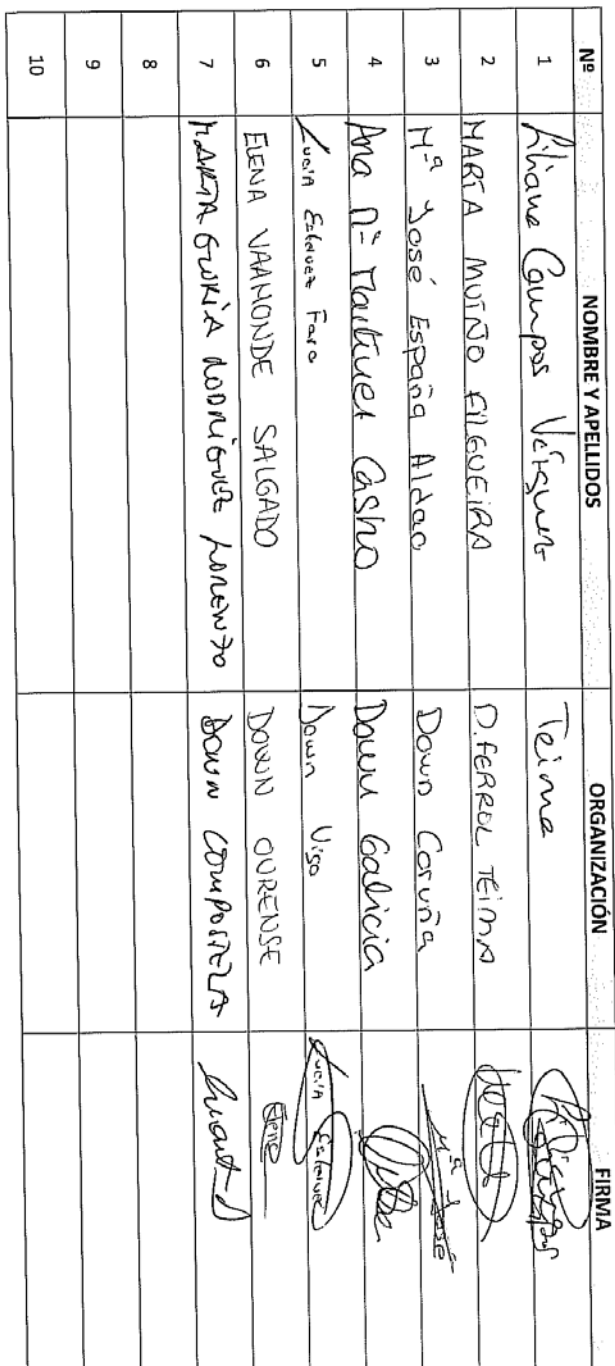 Nº NOMBRE Y APELLIDOS ORGANIZACIÓN FIRMA
1 Liliana Campos Veiguet Teima
2 MARTA MUIÑO FILGUEIRA D. FERROL TEIMA
3 Mª José España Aldao Down Coruña Mª José
4 Ana Mª Martinez Castro Down Galicia
5 Lucía Estévez Faro Down Vigo Lucía Estévez
6 ELENA VAAMONDE SALGADO DOWN OURENSE Elena
7 MARTA GLORIA RODRIGUEZ LORENZO DOWN COMPOSTELA
8
9
10